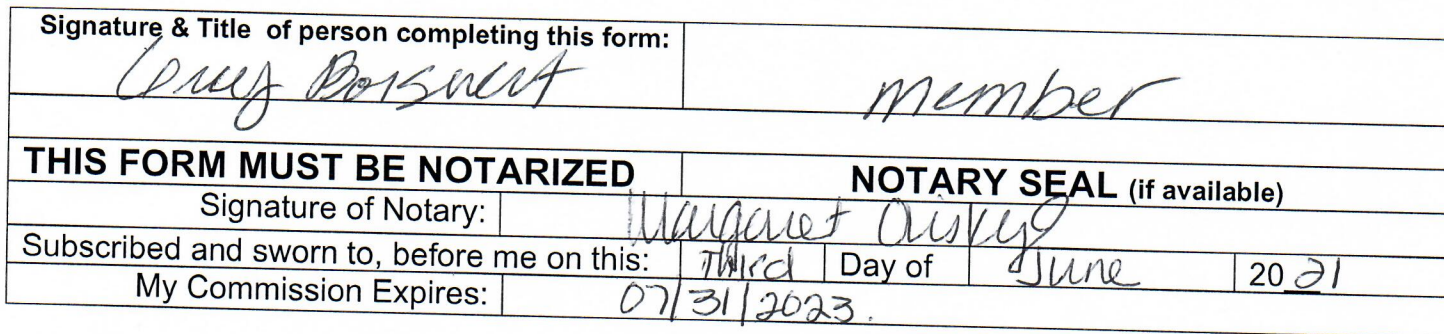 Signature & Title of person completing this form:
member
THIS FORM MUST BE NOTARIZED NOTARY SEAL (if available)
Signature of Notary: Margaret
Subscribed and sworn to, before me on this: Third Day of June 2021
My Commission Expires: 07/31/2023.